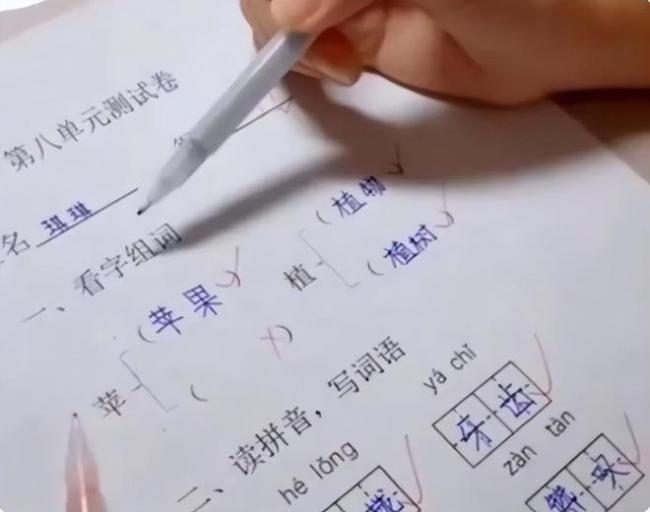 第八单元测试卷
名 琪琪
一、看字组词
植 (植物)
(植树)
苹 (苹果)
( )
二、读拼音，写词语
hé lǒng yá chǐ
拢 牙齿
zàn tàn
叹